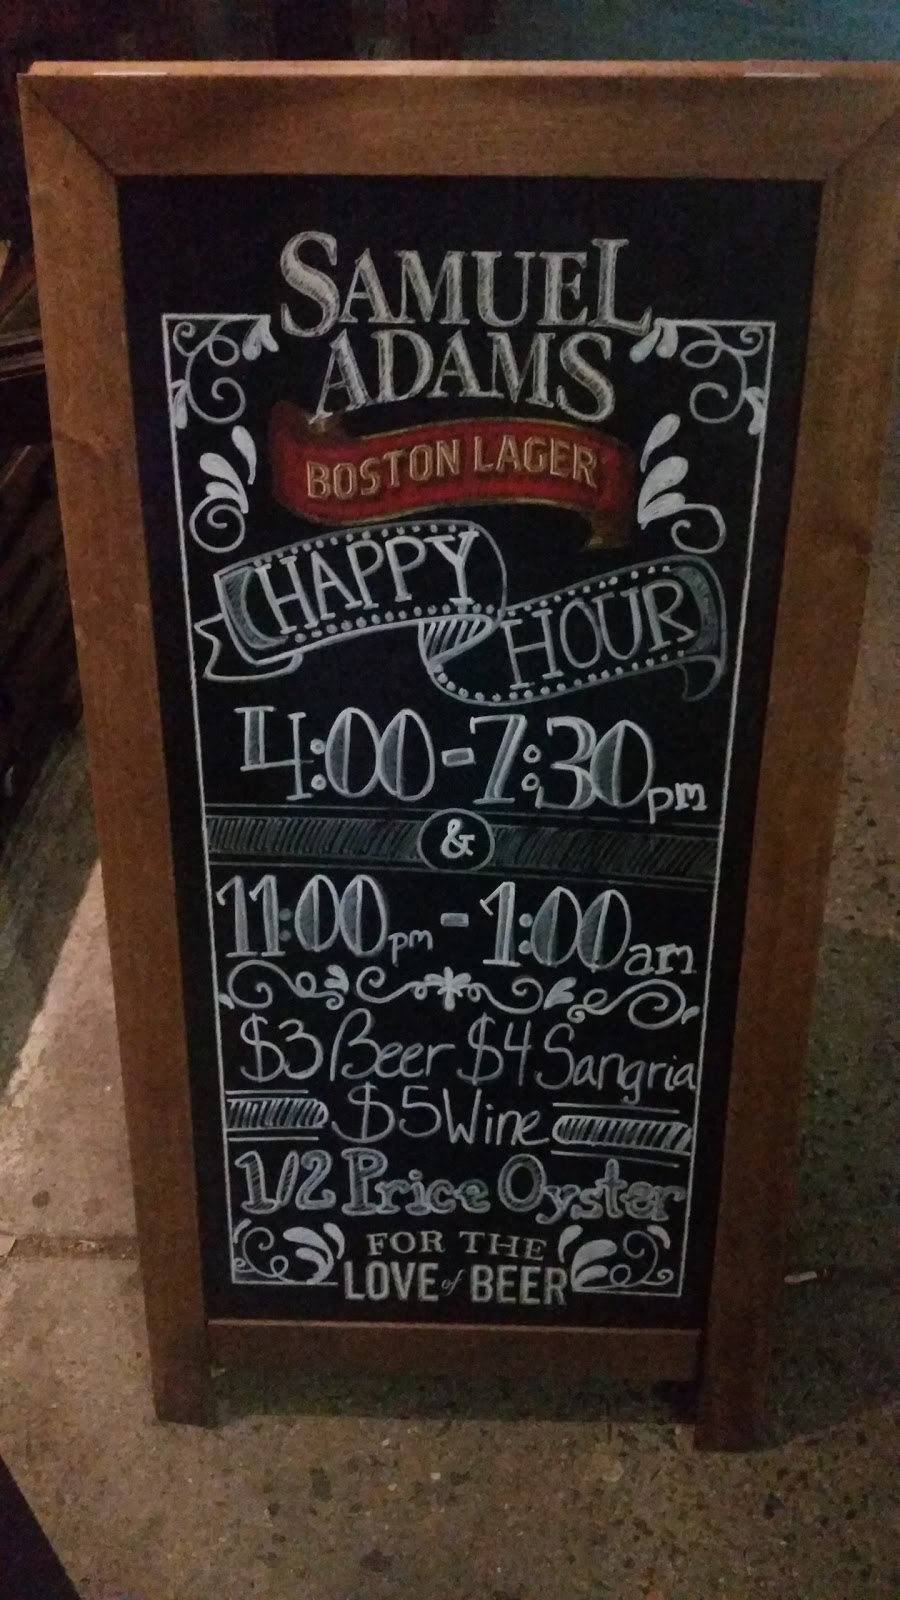 SAMUEL
ADAMS
BOSTON LAGER
HAPPY
HOUR
4:00-7:30pm
&
11:00pm-1:00am
$3 Beer $4 Sangria
$5 Wine
1/2 Price Oyster
FOR THE
LOVE of BEER